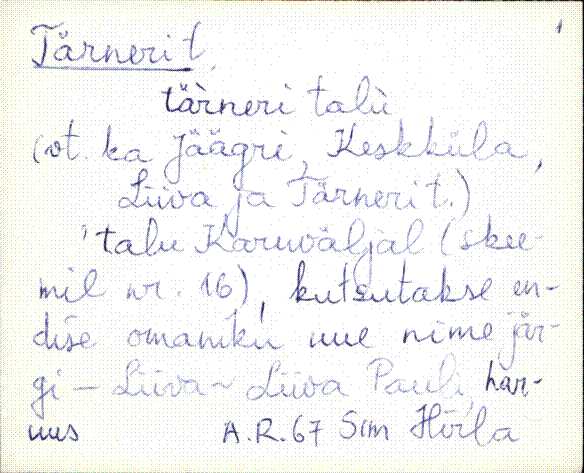 1
Tärneri t.
tä̀rneri talù
(vt. ka Jäägri, Keskküla,
Liiva ja Tärneri t.)
'talu Karuväljal (skee-
mil nr. 16), kutsutakse en-
dise omaniku uue nime jär-
gi – Liiva ~ Liiva Pauli, har-
uus A.R. 67 Sim